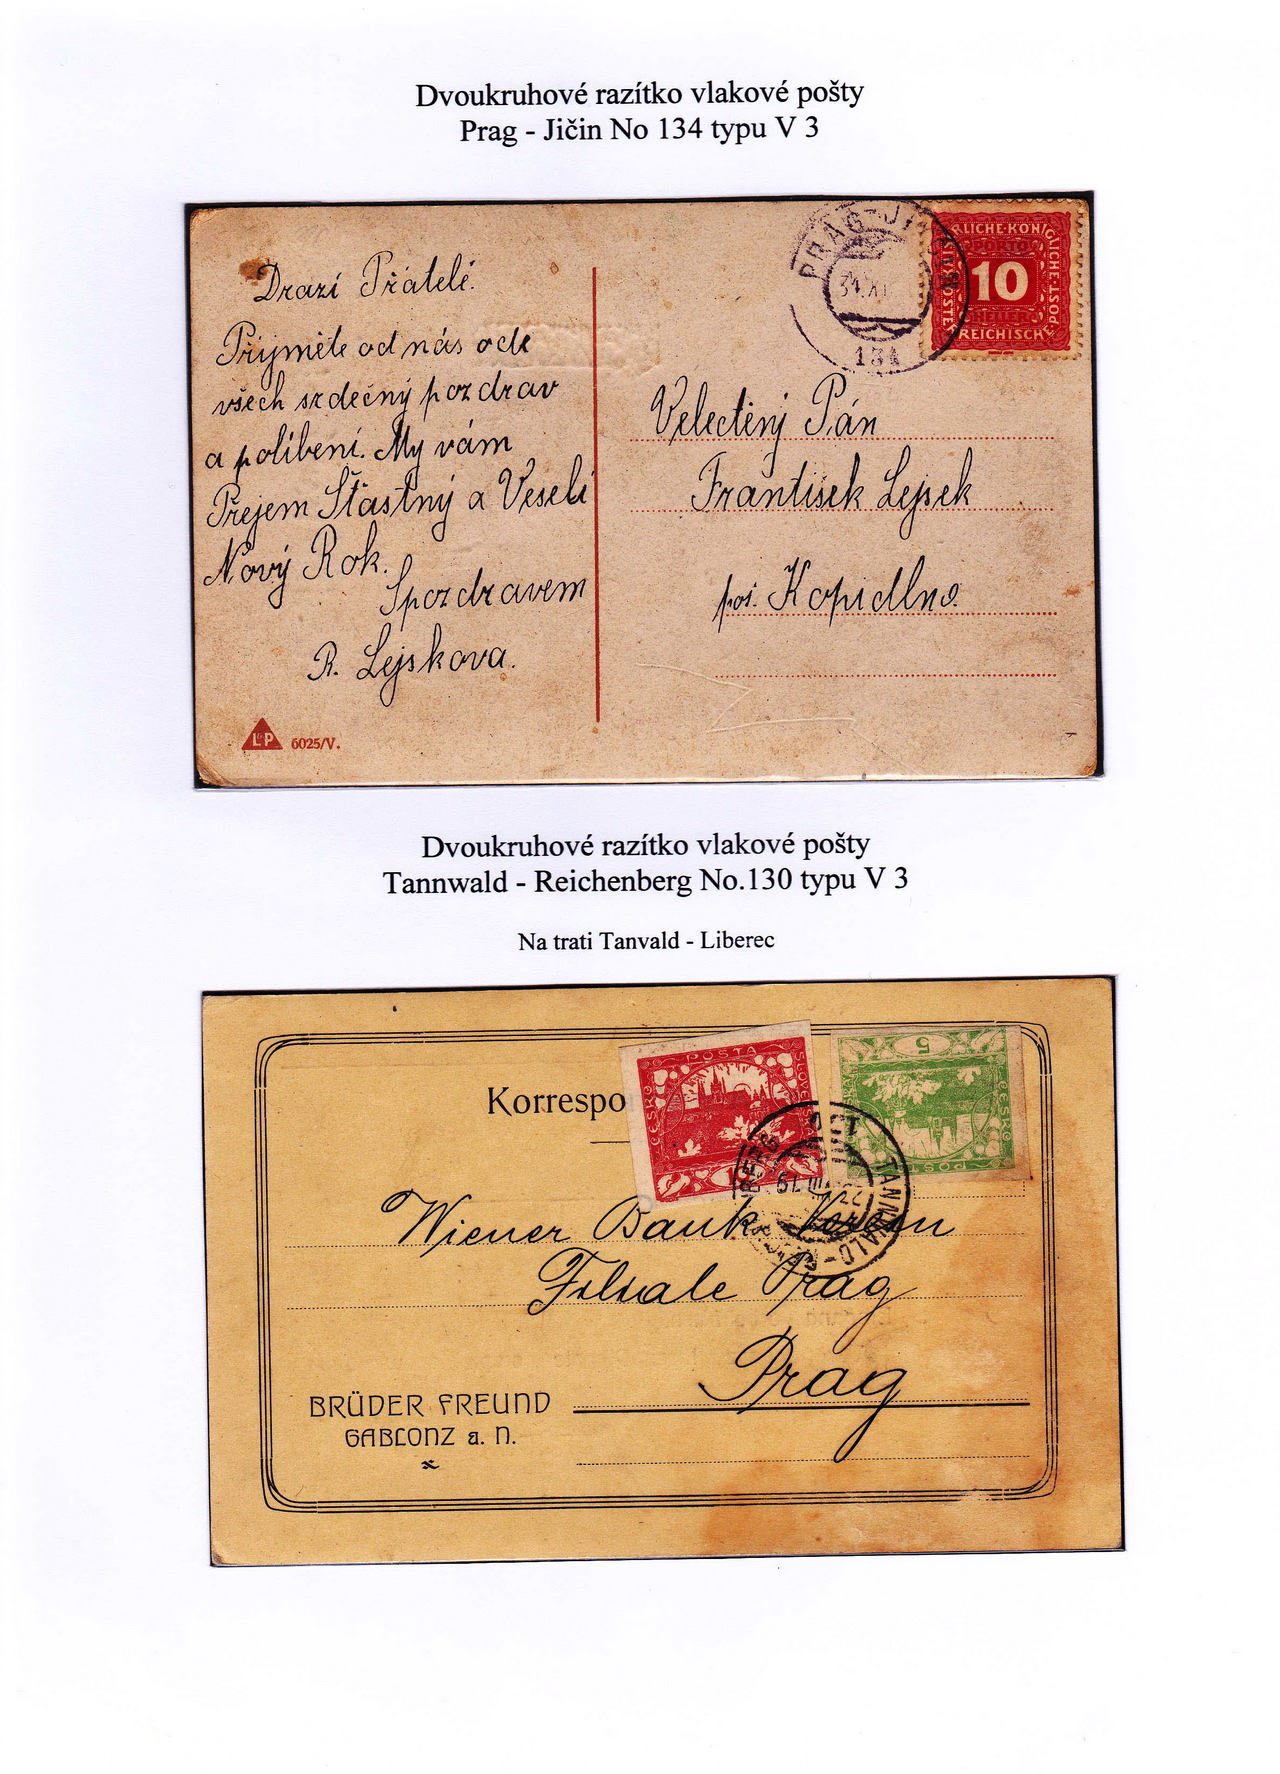 Dvoukruhové razítko vlakové pošty
Prag - Jičin No 134 typu V 3
PRAG-JIČIN
31.XI
134
RLICHE·KÖNIGLICHE POST·
PORTO
10
REICHISCHE
Drazí Přátelé.
Přijměte od nás ode
všech srdečný pozdrav
a políbení. My vám
Přejem Šťastný a Veselí
Nový Rok.
Spozdravem
R. Lejskova.
Velectěný Pán
František Lejsek
poš. Kopidlno.
L&P 6025/V.
Dvoukruhové razítko vlakové pošty
Tannwald - Reichenberg No.130 typu V 3
Na trati Tanvald - Liberec
Korrespo
POŠTA
ČESKO
SLOVENSKÁ
5
ČESKO
POŠTA
TANNWALD-
130
22 VIII 19
Wiener Bank Verein
Filiale Prag
Prag
BRÜDER FREUND
GABLONZ a. N.